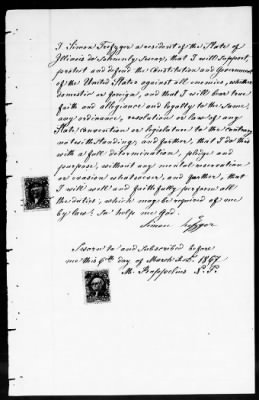 I Simon Trefzger a resident of the State of
Illinois do solemnly swear, that I will support,
protect and defend the Constitution and Government
of the United States against all enemies, whether
domestic or foreign, and that I will bear true
faith and allegiance and loyalty to the same,
any ordinance, resolution or law of any
State Convention or legislature to the contrary
notwithstanding; and further, that I do this
with a full determination, pledge and
purpose, without any mental reservation
or evasion whatsoever, and further, that
I will well and faithfully perform all
the duties, which may be required of me
by law: So help me God.
Simon
Sworn to and subscribed before
me this 6th day of March A.D. 1867
N. P.